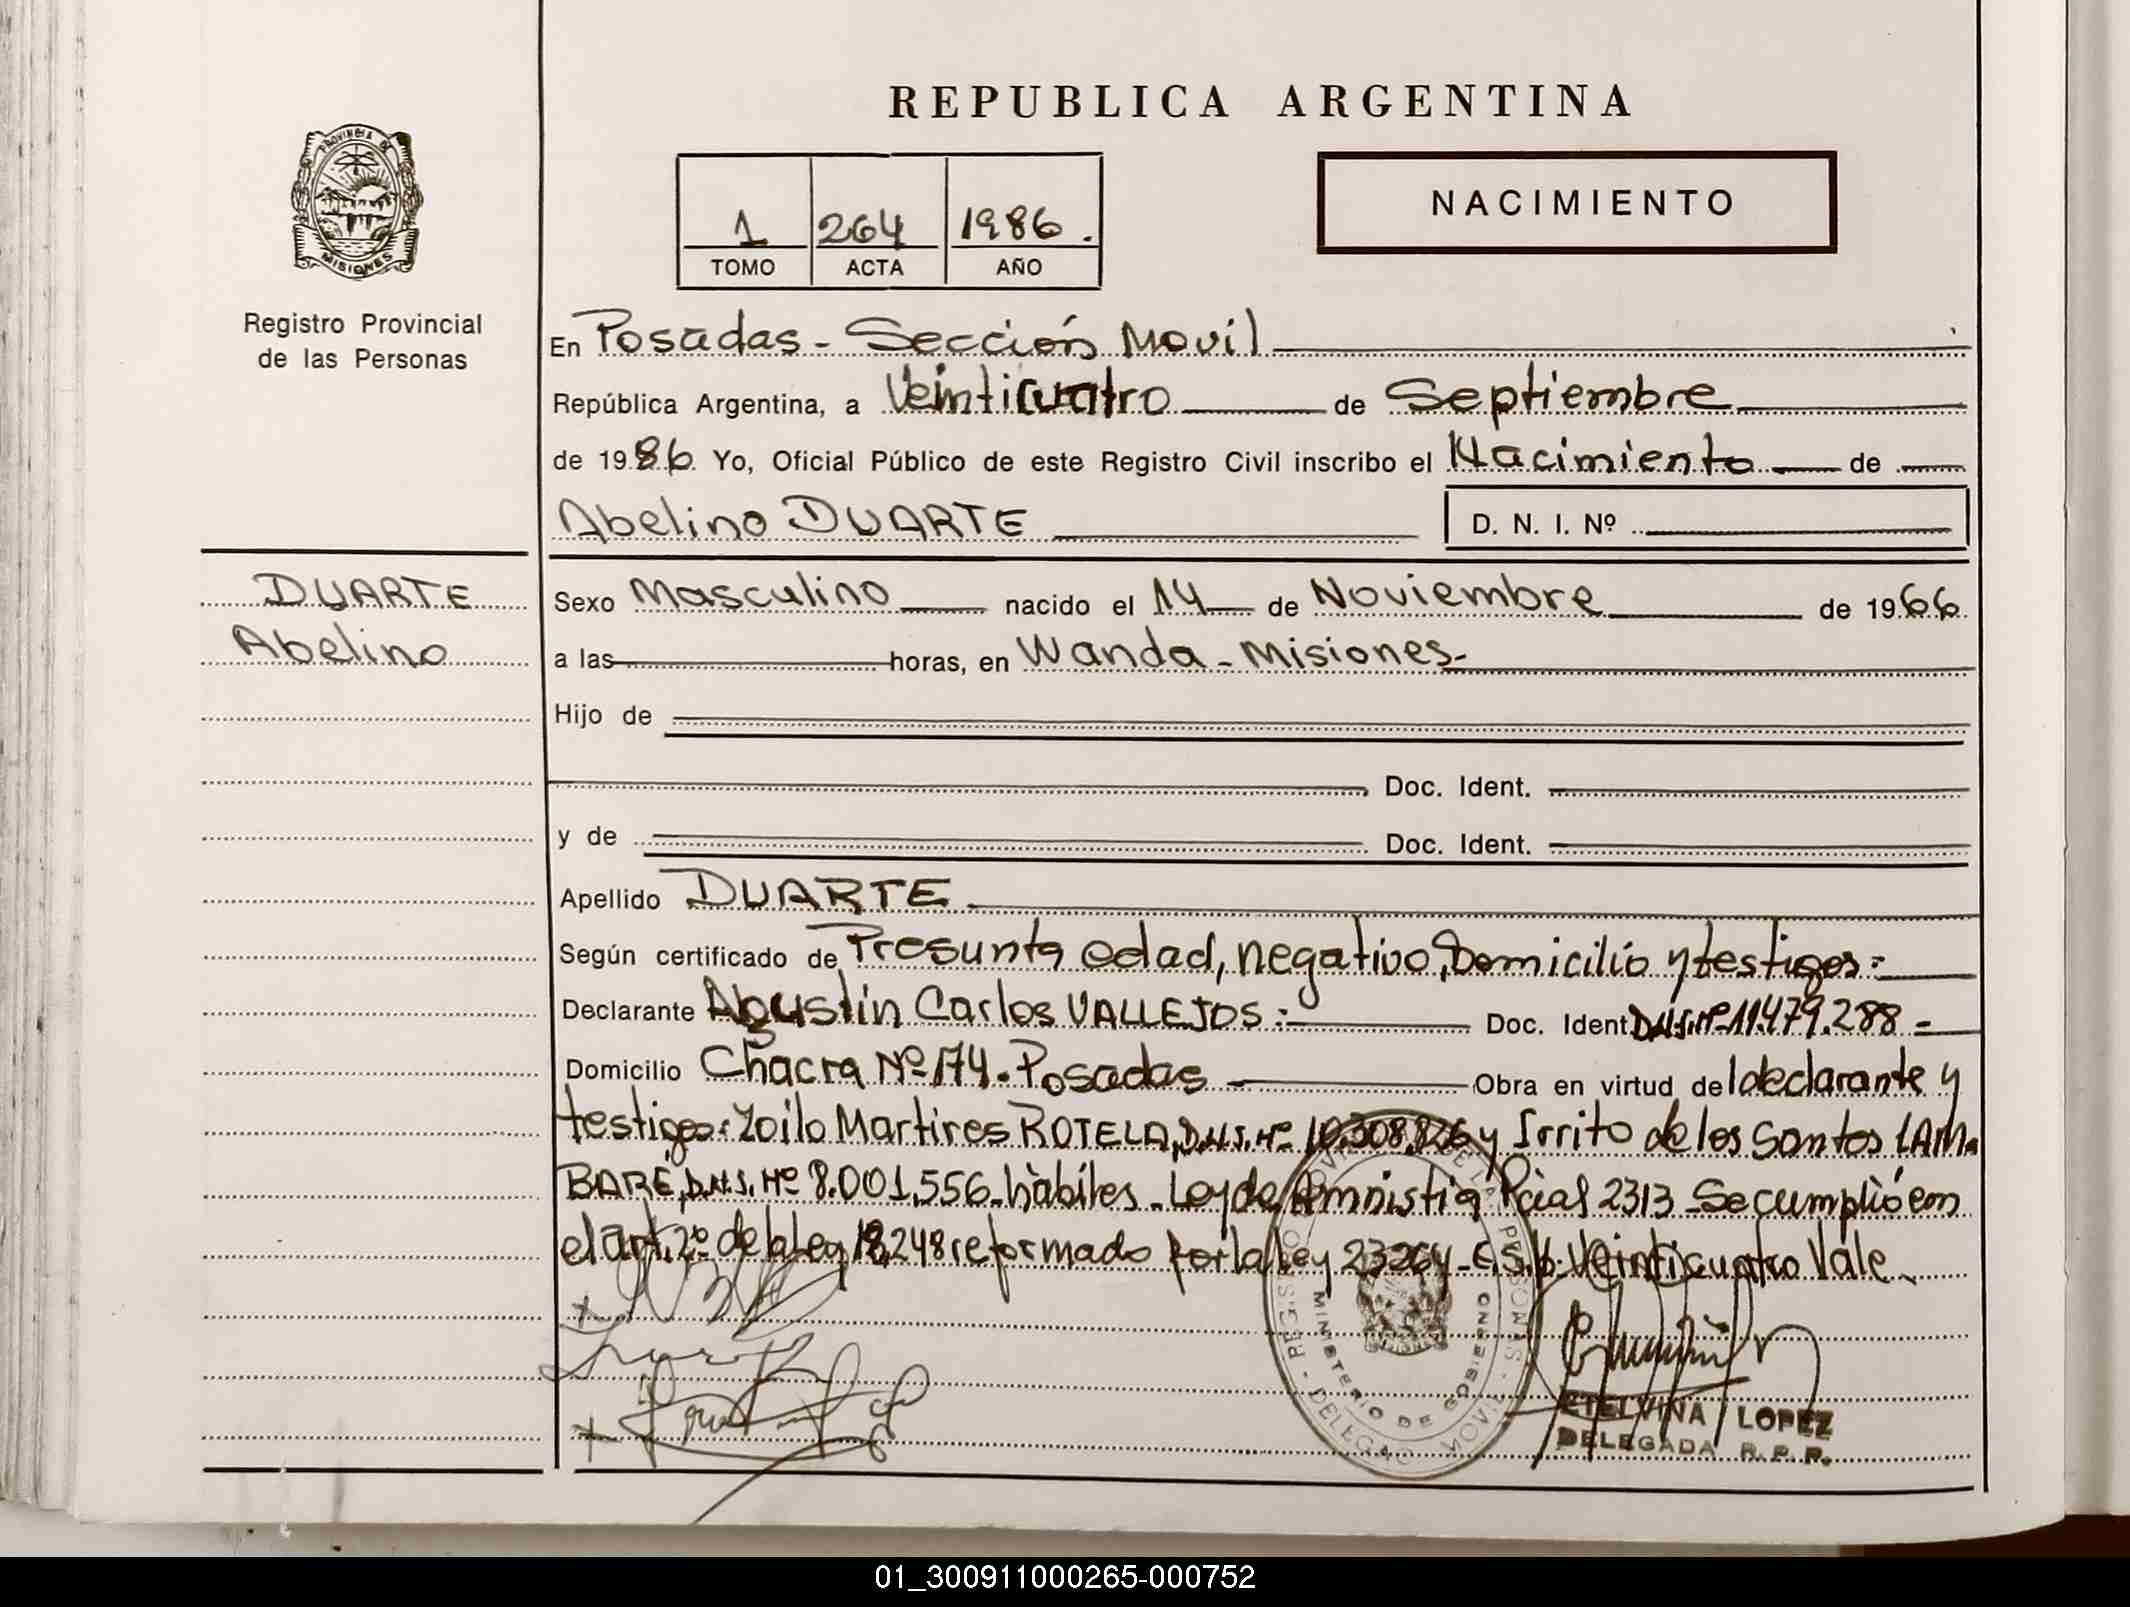 REPUBLICA ARGENTINA
PROVINCIA DE
MISIONES
Registro Provincial
de las Personas
1 264 1986.
TOMO ACTA AÑO
NACIMIENTO
En Posadas - Sección Movil
República Argentina, a Veinticuatro de Septiembre
de 1986 Yo, Oficial Público de este Registro Civil inscribo el Nacimiento de
Abelino DUARTE D. N. I. Nº
DUARTE
Abelino
Sexo Masculino nacido el 14 de Noviembre de 1966
a las horas, en Wanda - Misiones-
Hijo de
Doc. Ident.
y de Doc. Ident.
Apellido DUARTE
Según certificado de Presunta edad, negativo, Domicilio y testigos:
Declarante Agustin Carlos VALLEJOS: Doc. Ident. D.N.I. Nº 11.479.288 -
Domicilio Chacra Nº 174. Posadas Obra en virtud del declarante y
testigos: Zoilo Martires ROTELA, D.N.I. Nº 10.308.826 y Irrito de los Santos LAM-
BARÉ, D.N.I. Nº 8.001.556 - hàbiles - Ley de Amnistia Pcial 2313 - Se cumplió con
el art. 2º de la Ley 18.248 reformado por la Ley 23264 - E.S.R. Veinticuatro Vale
MINISTERIO DE GOBIERNO
ETELVINA LOPEZ
DELEGADA R. P. P.
01_300911000265-000752